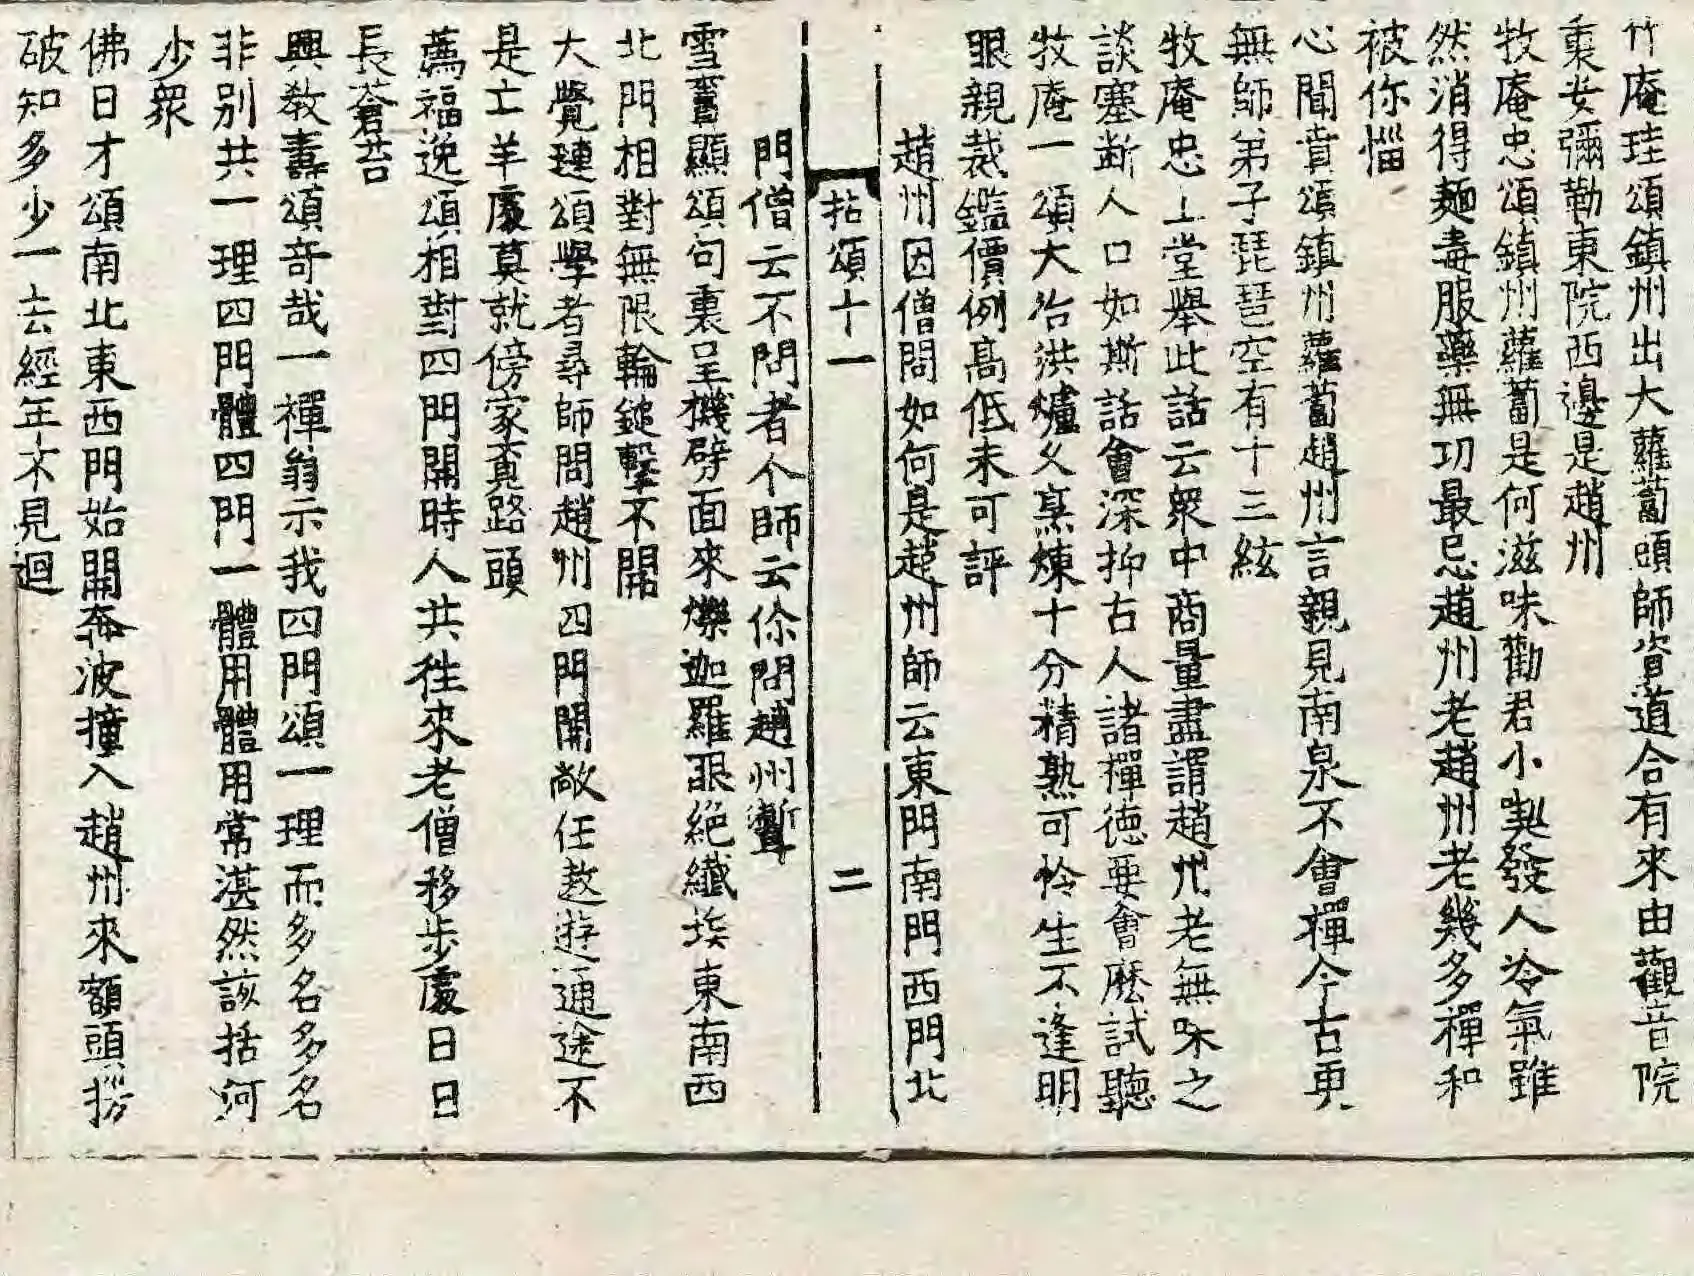 竹庵珪頌鎮州出大蘿蔔頭師資道合有來由觀音院
裏安彌勒東院西邊是趙州
牧庵忠頌鎮州蘿蔔是何滋味勸君小喫發人冷氣雖
然消得麵毒服藥無功最忌趙州老趙州老幾多禪和
被你惱
心聞賁頌鎮州蘿蔔趙州言親見南泉不會禪今古更
無師弟子琵琶空有十三絃
牧庵忠上堂舉此話云衆中商量盡謂趙州老無味之
談塞斷人口如斯話會深抑古人諸禪德要會麽試聽
牧庵一頌大冶洪爐久烹煉十分精熟可怜生不逢明
眼親裁鑑價例高低未可評
趙州因僧問如何是趙州師云東門南門西門北
拈頌十一 二
門僧云不問者个師云你問趙州聻
雪竇顯頌句裏呈機劈面來爍迦羅眼絕纖埃東南西
北門相對無限輪鎚擊不開
大覺璉頌學者尋師問趙州四門開敞任遨遊通途不
是亡羊處莫就傍家覔路頭
薦福逸頌相對四門開時人共徃來老僧移步處日日
長蒼苔
興教壽頌奇哉一禪翁示我四門頌一理而多名多名
非别共一理四門體四門一體用體用常湛然該括河
少衆
佛日才頌南北東西門始開奔波撞入趙州來額頭撈
破知多少一去經年不見迴